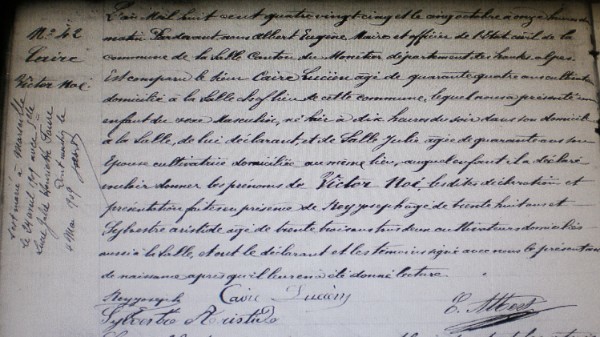 N° 42
Caire
Victor Noé
S'est marié à Marseille
le 24 avril 1909 avec
Faure
Dont mention le
4 Mai 1909
L'an Mil huit cent quatre vingt cinq et le cinq octobre à onze heures du
matin Pardevant nous Albert Eugène Maire et officier de l'Etat civil de la
commune de la Salle Canton du Monêtier département des hautes alpes.
Est comparu le sieur Caire Lucien âgé de quarante quatre ans cultivateur
domicilié à la Salle chef lieu de cette commune, lequel nous a présenté un
enfant du sexe Masculin, né hier à dix heures du soir dans son domicile
à la Salle, de lui déclarant, et de Salle Julie âgée de quarante ans son
Epouse cultivatrice domiciliée au même lieu, auquel enfant il a déclaré
vouloir donner les prénoms de Victor Noé lesdites déclaration et
présentation faites en présence de Rey joseph âgé de trente huit ans et
Sylvestre aristide âgé de trente trois ans tous deux cultivateurs domiciliés
aussi à la Salle, et ont le déclarant et les témoins signé avec nous le présent acte
de naissance après qu'il leur en a été donné lecture.
Rey joseph Caire Lucien E. Albert
Sylvestre Aristide